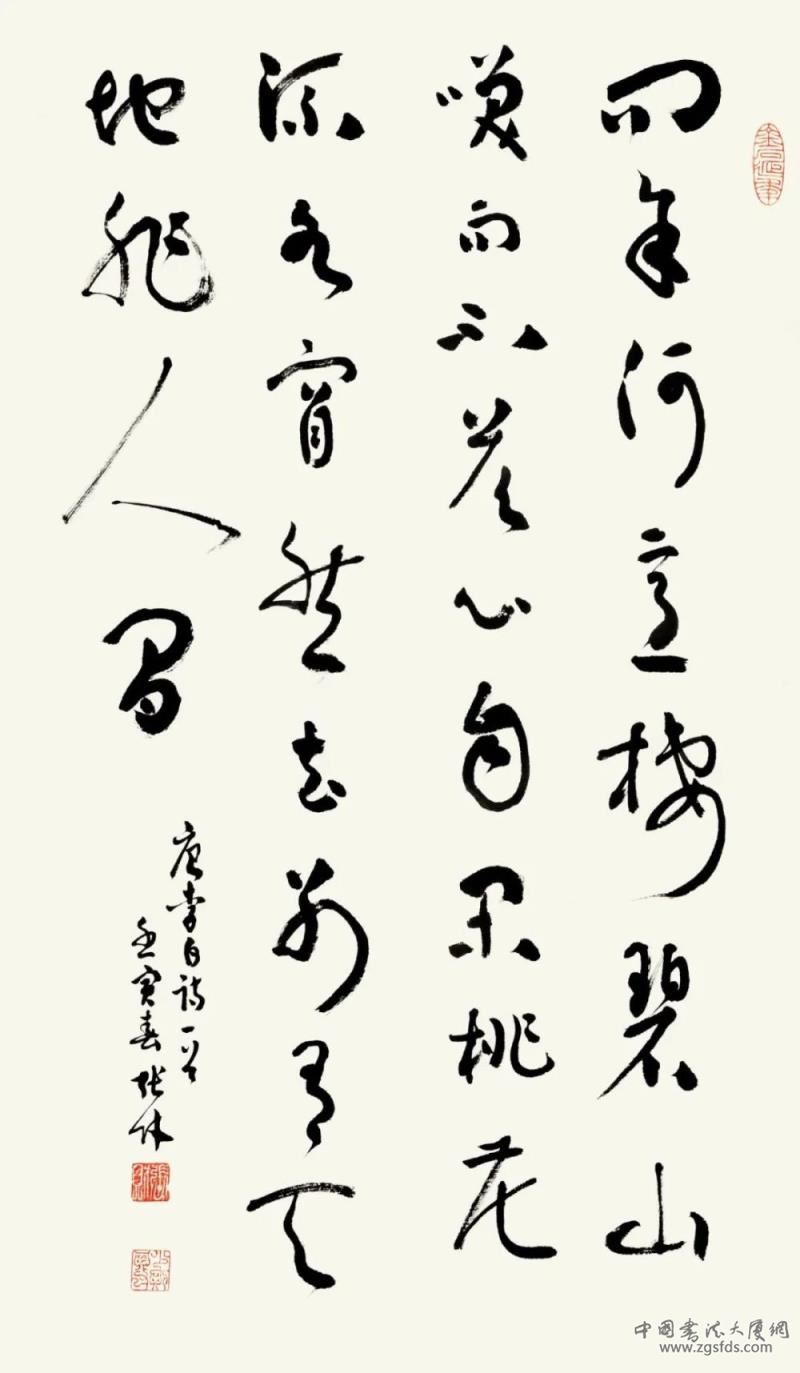 問余何意棲碧山
笑而不答心自閑桃花
流水窅然去別有天
地非人間
唐李白詩一首
壬寅春張
中国书法大厦網
www.zgsfds.com